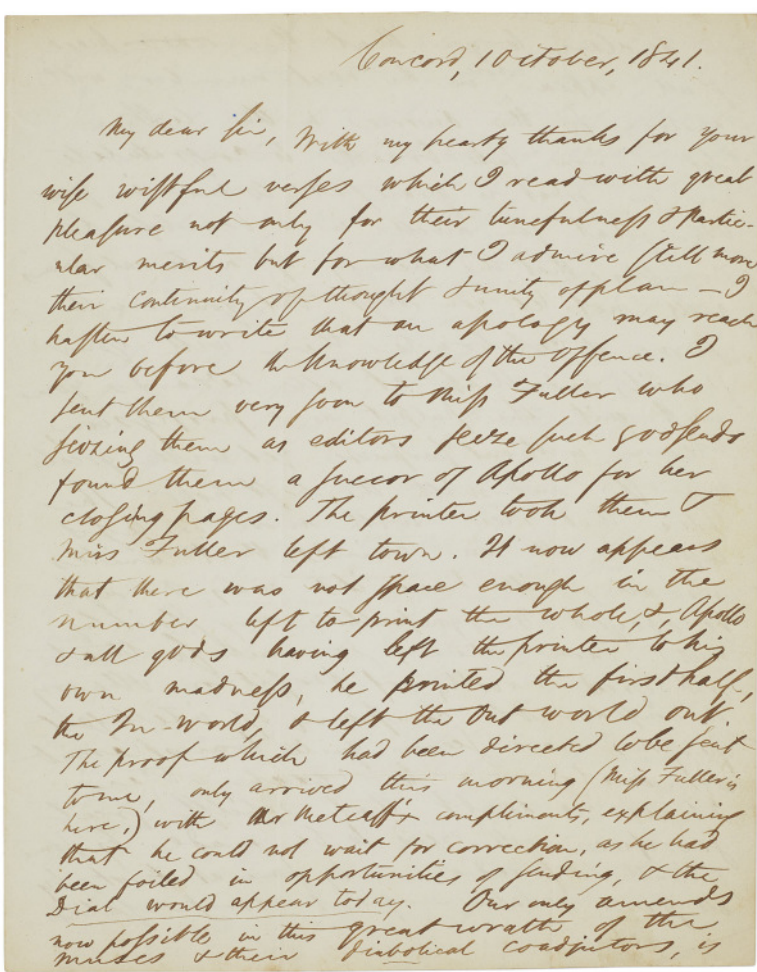 Concord, 1 October, 1841.
My dear Sir, With my hearty thanks for your
wise wistful verses which I read with great
pleasure not only for their tunefulness & partic-
ular merits but for what I admire still more
their continuity of thought & unity of plan — I
hasten to write that an apology may reach
you before the knowledge of the offence. I
sent them very soon to Miss Fuller who
siezing them as editors seize such godsends
found them a succor of Apollo for her
closing pages. The printer took them &
Miss Fuller left town. It now appears
that there was not space enough in the
number left to print the whole, &, Apollo
& all gods having left the printer to his
own madness, he printed the first half,
the In-world, & left the Out world out.
The proof which had been directed to be sent
to me, only arrived this morning (Miss Fuller is
here,) with Mr Metcalf's compliments, explaining
that he could not wait for correction, as he had
been foiled in opportunities of sending, & the
Dial would appear today. Our only amends
now possible in this great wrath of the
muses & their diabolical coadjutors, is